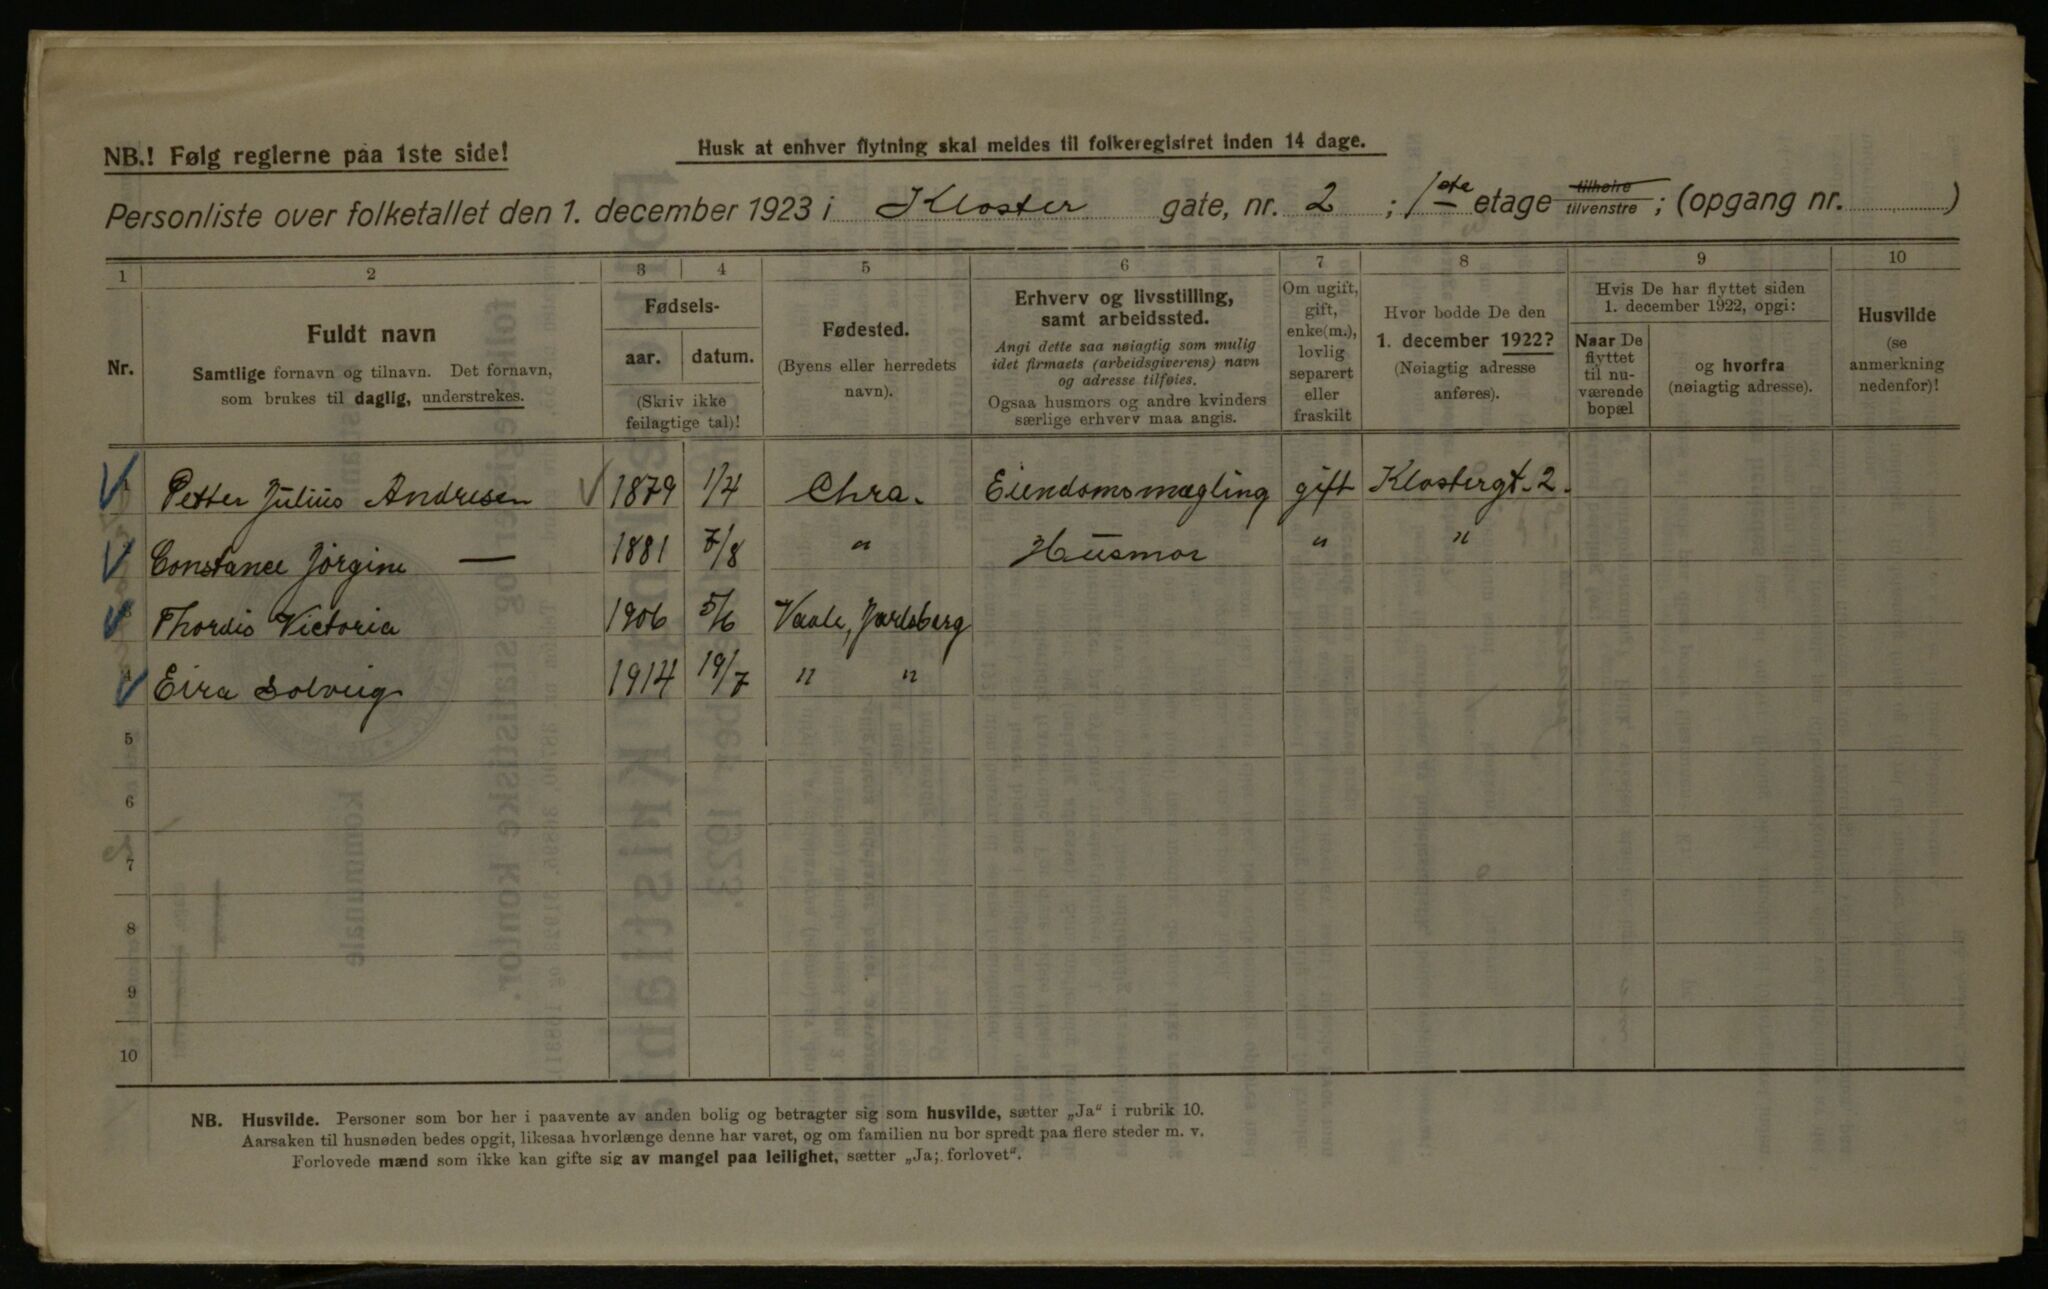 NB.! Følg reglerne paa 1ste side!
Husk at enhver flytning skal meldes til folkeregistret inden 14 dage.
Personliste over folketallet den 1. december 1923 i Kloster gate, nr. 2 ; 1ste etage tilhøire tilvenstre ; (opgang nr. )
1 2 3 4 5 6 7 8 9 10
Nr.
Fuldt navn
Samtlige fornavn og tilnavn. Det fornavn,
som brukes til daglig, understrekes.
Fødsels-
aar. datum.
(Skriv ikke
feilagtige tal)!
Fødested.
(Byens eller herredets
navn).
Erhverv og livsstilling,
samt arbeidssted.
Angi dette saa nøiagtig som mulig
idet firmaets (arbeidsgiverens) navn
og adresse tilføies.
Ogsaa husmors og andre kvinders
særlige erhverv maa angis.
Om ugift,
gift,
enke(m.),
lovlig
separert
eller
fraskilt
Hvor bodde De den
1. december 1922?
(Nøiagtig adresse
anføres).
Hvis De har flyttet siden
1. december 1922, opgi:
Naar De
flyttet
til nu-
værende
bopæl
og hvorfra
(nøiagtig adresse).
Husvilde
(se
anmerkning
nedenfor)!
Petter Julius Andresen 1879 1/4 Chra. Eiendomsmægling gift Klostergt. 2.
Constance Jørgine — 1881 7/8 " Husmor " "
Thordis Victoria 1906 5/6 Vaale, Jarlsberg
Eira Solveig 1914 19/7 " "
5
6
7
8
9
10
NB. Husvilde. Personer som bor her i paavente av anden bolig og betragter sig som husvilde, sætter „Ja" i rubrik 10.
Aarsaken til husnøden bedes opgit, likesaa hvorlænge denne har varet, og om familien nu bor spredt paa flere steder m. v.
Forlovede mænd som ikke kan gifte sig av mangel paa leilighet, sætter „Ja; forlovet".